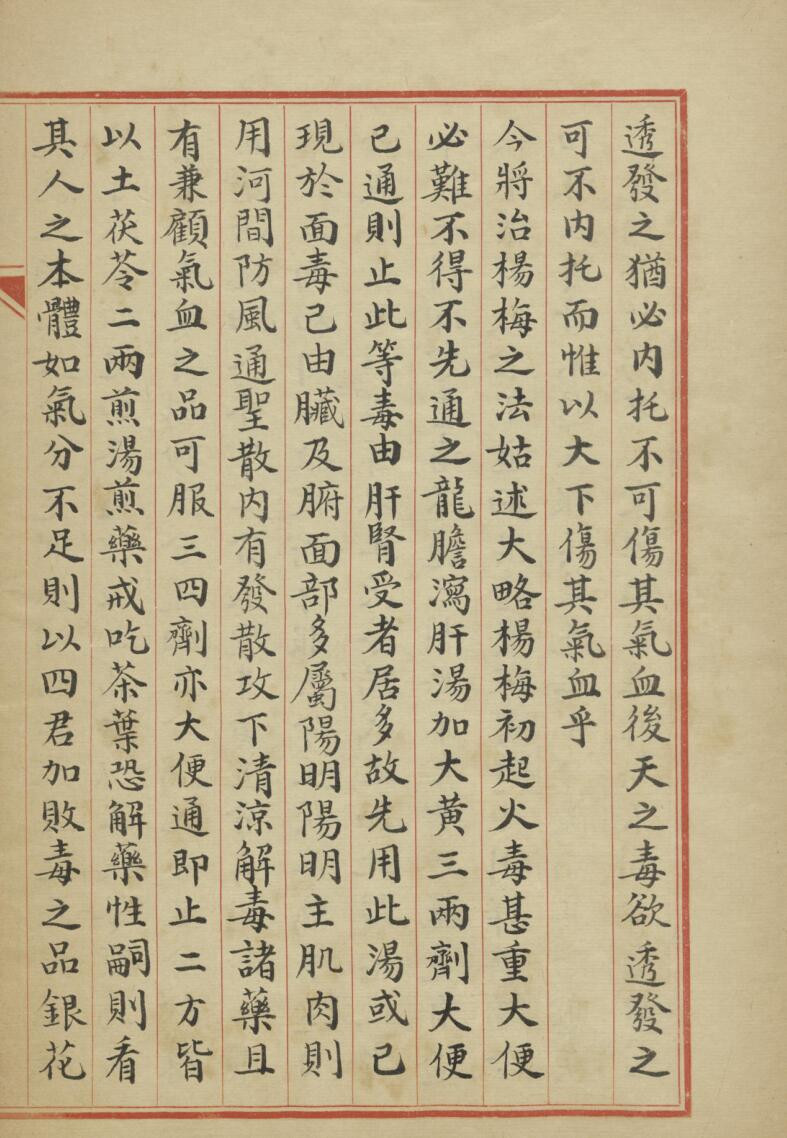 透發之猶必内托不可傷其氣血後天之毒欲透發之
可不内托而惟以大下傷其氣血乎
今將治楊梅之法姑述大略楊梅初起火毒甚重大便
必難不得不先通之龍膽瀉肝湯加大黃三兩劑大便
已通則止此等毒由肝腎受者居多故先用此湯或已
現於面毒已由臟及腑面部多屬陽明陽明主肌肉則
用河間防風通聖散内有發散攻下清涼解毒諸藥且
有兼顧氣血之品可服三四劑亦大便通即止二方皆
以土茯苓二兩煎湯煎藥戒吃茶葉恐解藥性嗣則看
其人之本體如氣分不足則以四君加敗毒之品銀花